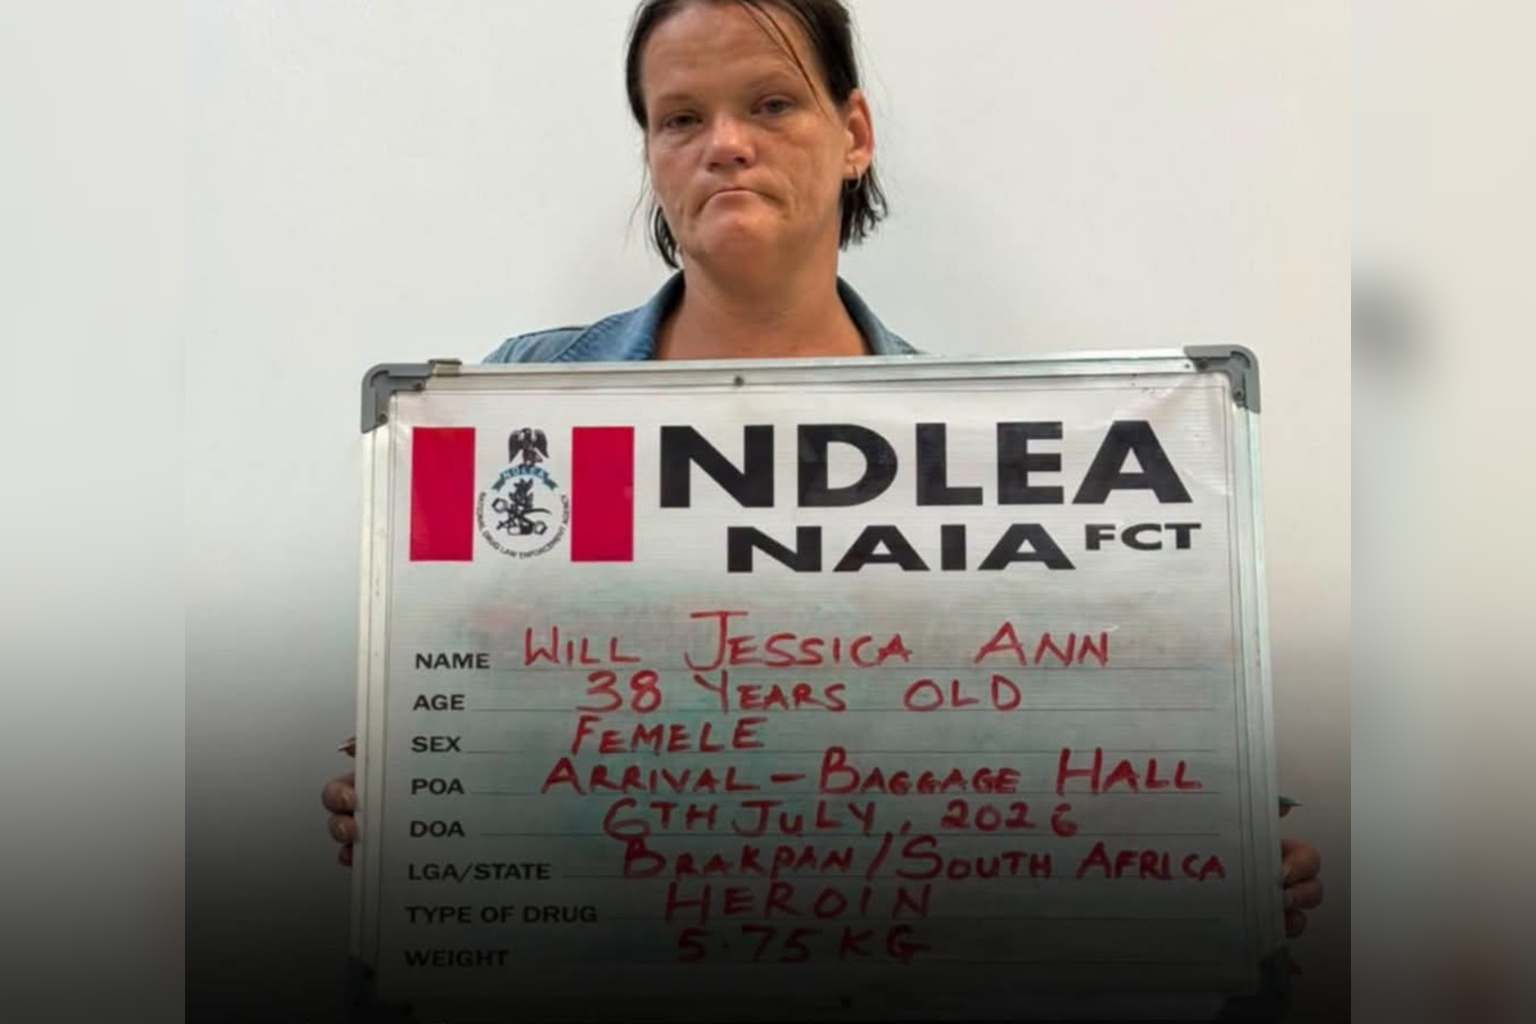 NDLEA
NDLEA
NATIONAL DRUG LAW ENFORCEMENT AGENCY
NAIA FCT
NAME WILL JESSICA ANN
AGE 38 YEARS OLD
SEX FEMELE
POA ARRIVAL - BAGGAGE HALL
DOA 6TH JULY, 2026
LGA/STATE BRAKPAN/SOUTH AFRICA
TYPE OF DRUG HEROIN
WEIGHT 5.75KG